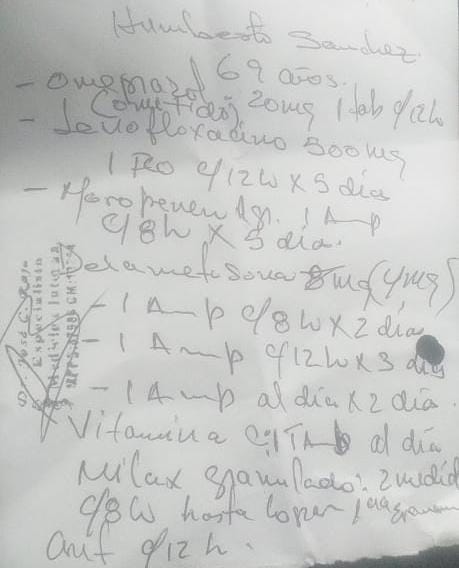 Humberto Sanchez
69 años.
- Omeprazol
(Cometido) 20mg 1 tab c/12h
- Levofloxacino 500mg
1 Fco c/12h x 5 dia
- Meropenen 1gr. 1 Amp
c/8h x 5 dia.
Dexametasona 8mg (4mg)
- 1 Amp c/8h x 2 dia
- 1 Amp c/12h x 3 dia
- 1 Amp al dia x 2 dia.
Vitamina C: 1 Tab al dia
Milax granulado: 2 medid
c/8h hasta
c/12h.
Dr. José C.
Especialista
Medicina Interna